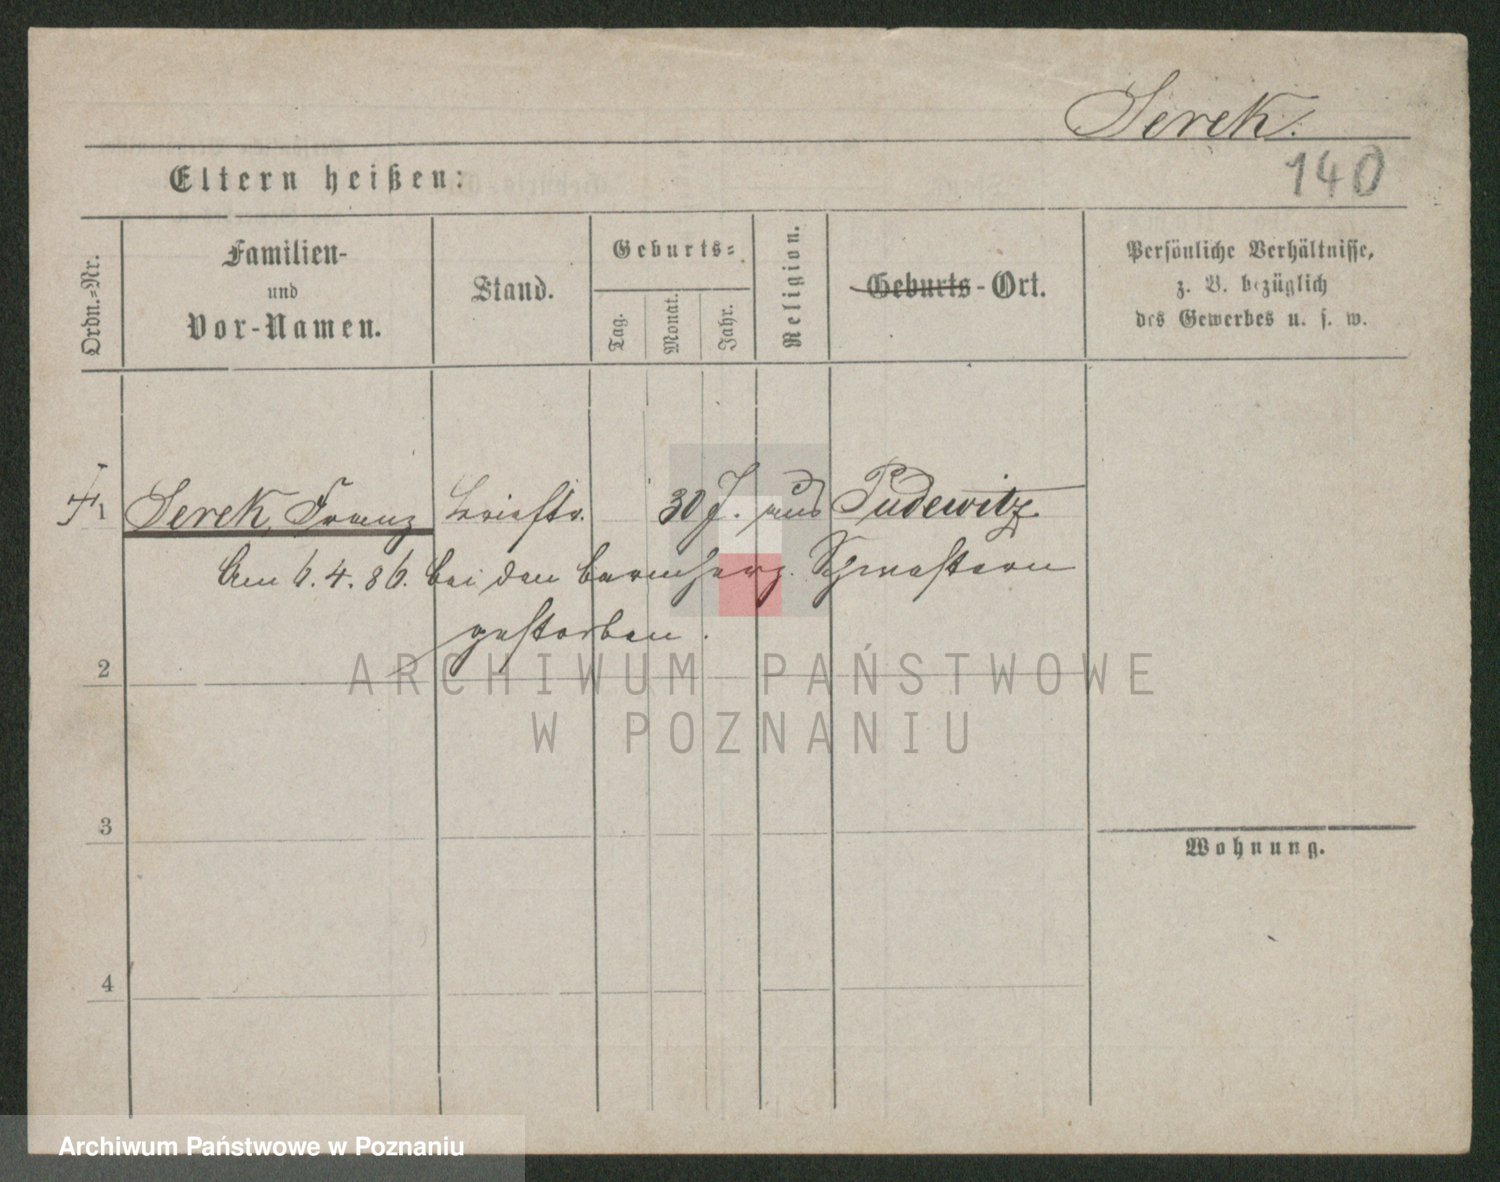 Serek.
140
Eltern heißen:
Ordn.-Nr.
Familien-
und
Vor-Namen.
Stand.
Geburts-
Tag.
Monat.
Jahr.
Religion.
Geburts-Ort.
Persönliche Verhältnisse,
z. B. bezüglich
des Gewerbes u. s. w.
† 1 Serek, Franz 30 J. aus Pudewitz.
Am 6. 4. 86. bei den barmherz. Schwestern
gestorben.
2
3
4
Wohnung.
ARCHIWUM PAŃSTWOWE
W POZNANIU
Archiwum Państwowe w Poznaniu